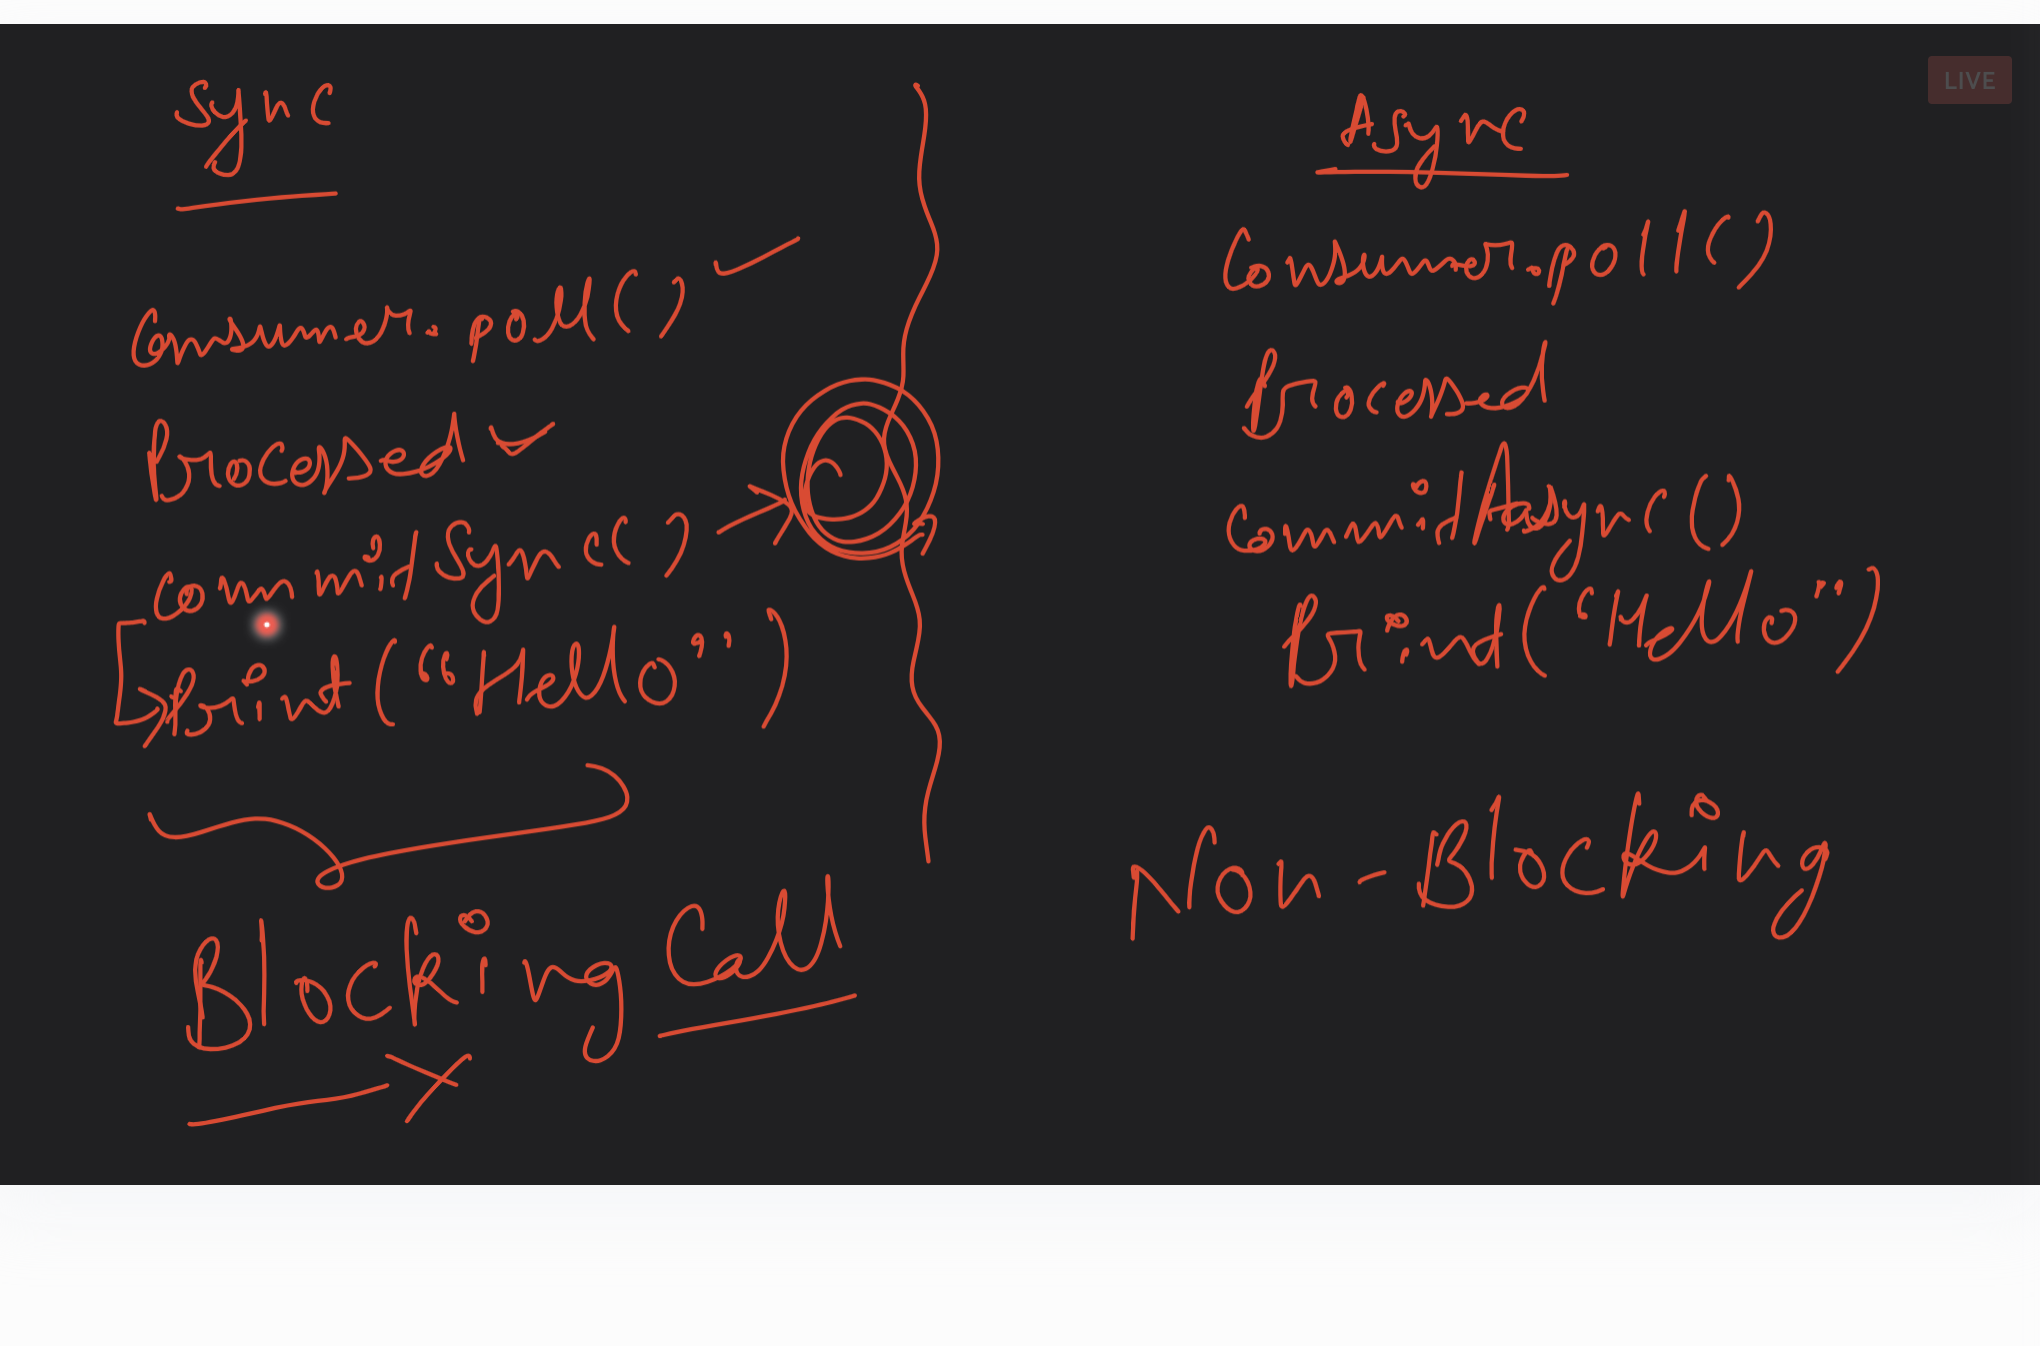 Sync
Consumer.poll()
Processed
CommitSync()
Print("Hello")
Blocking Call
LIVE
Async
Consumer.poll()
Processed
CommitAsync()
Print("Hello")
Non-Blocking